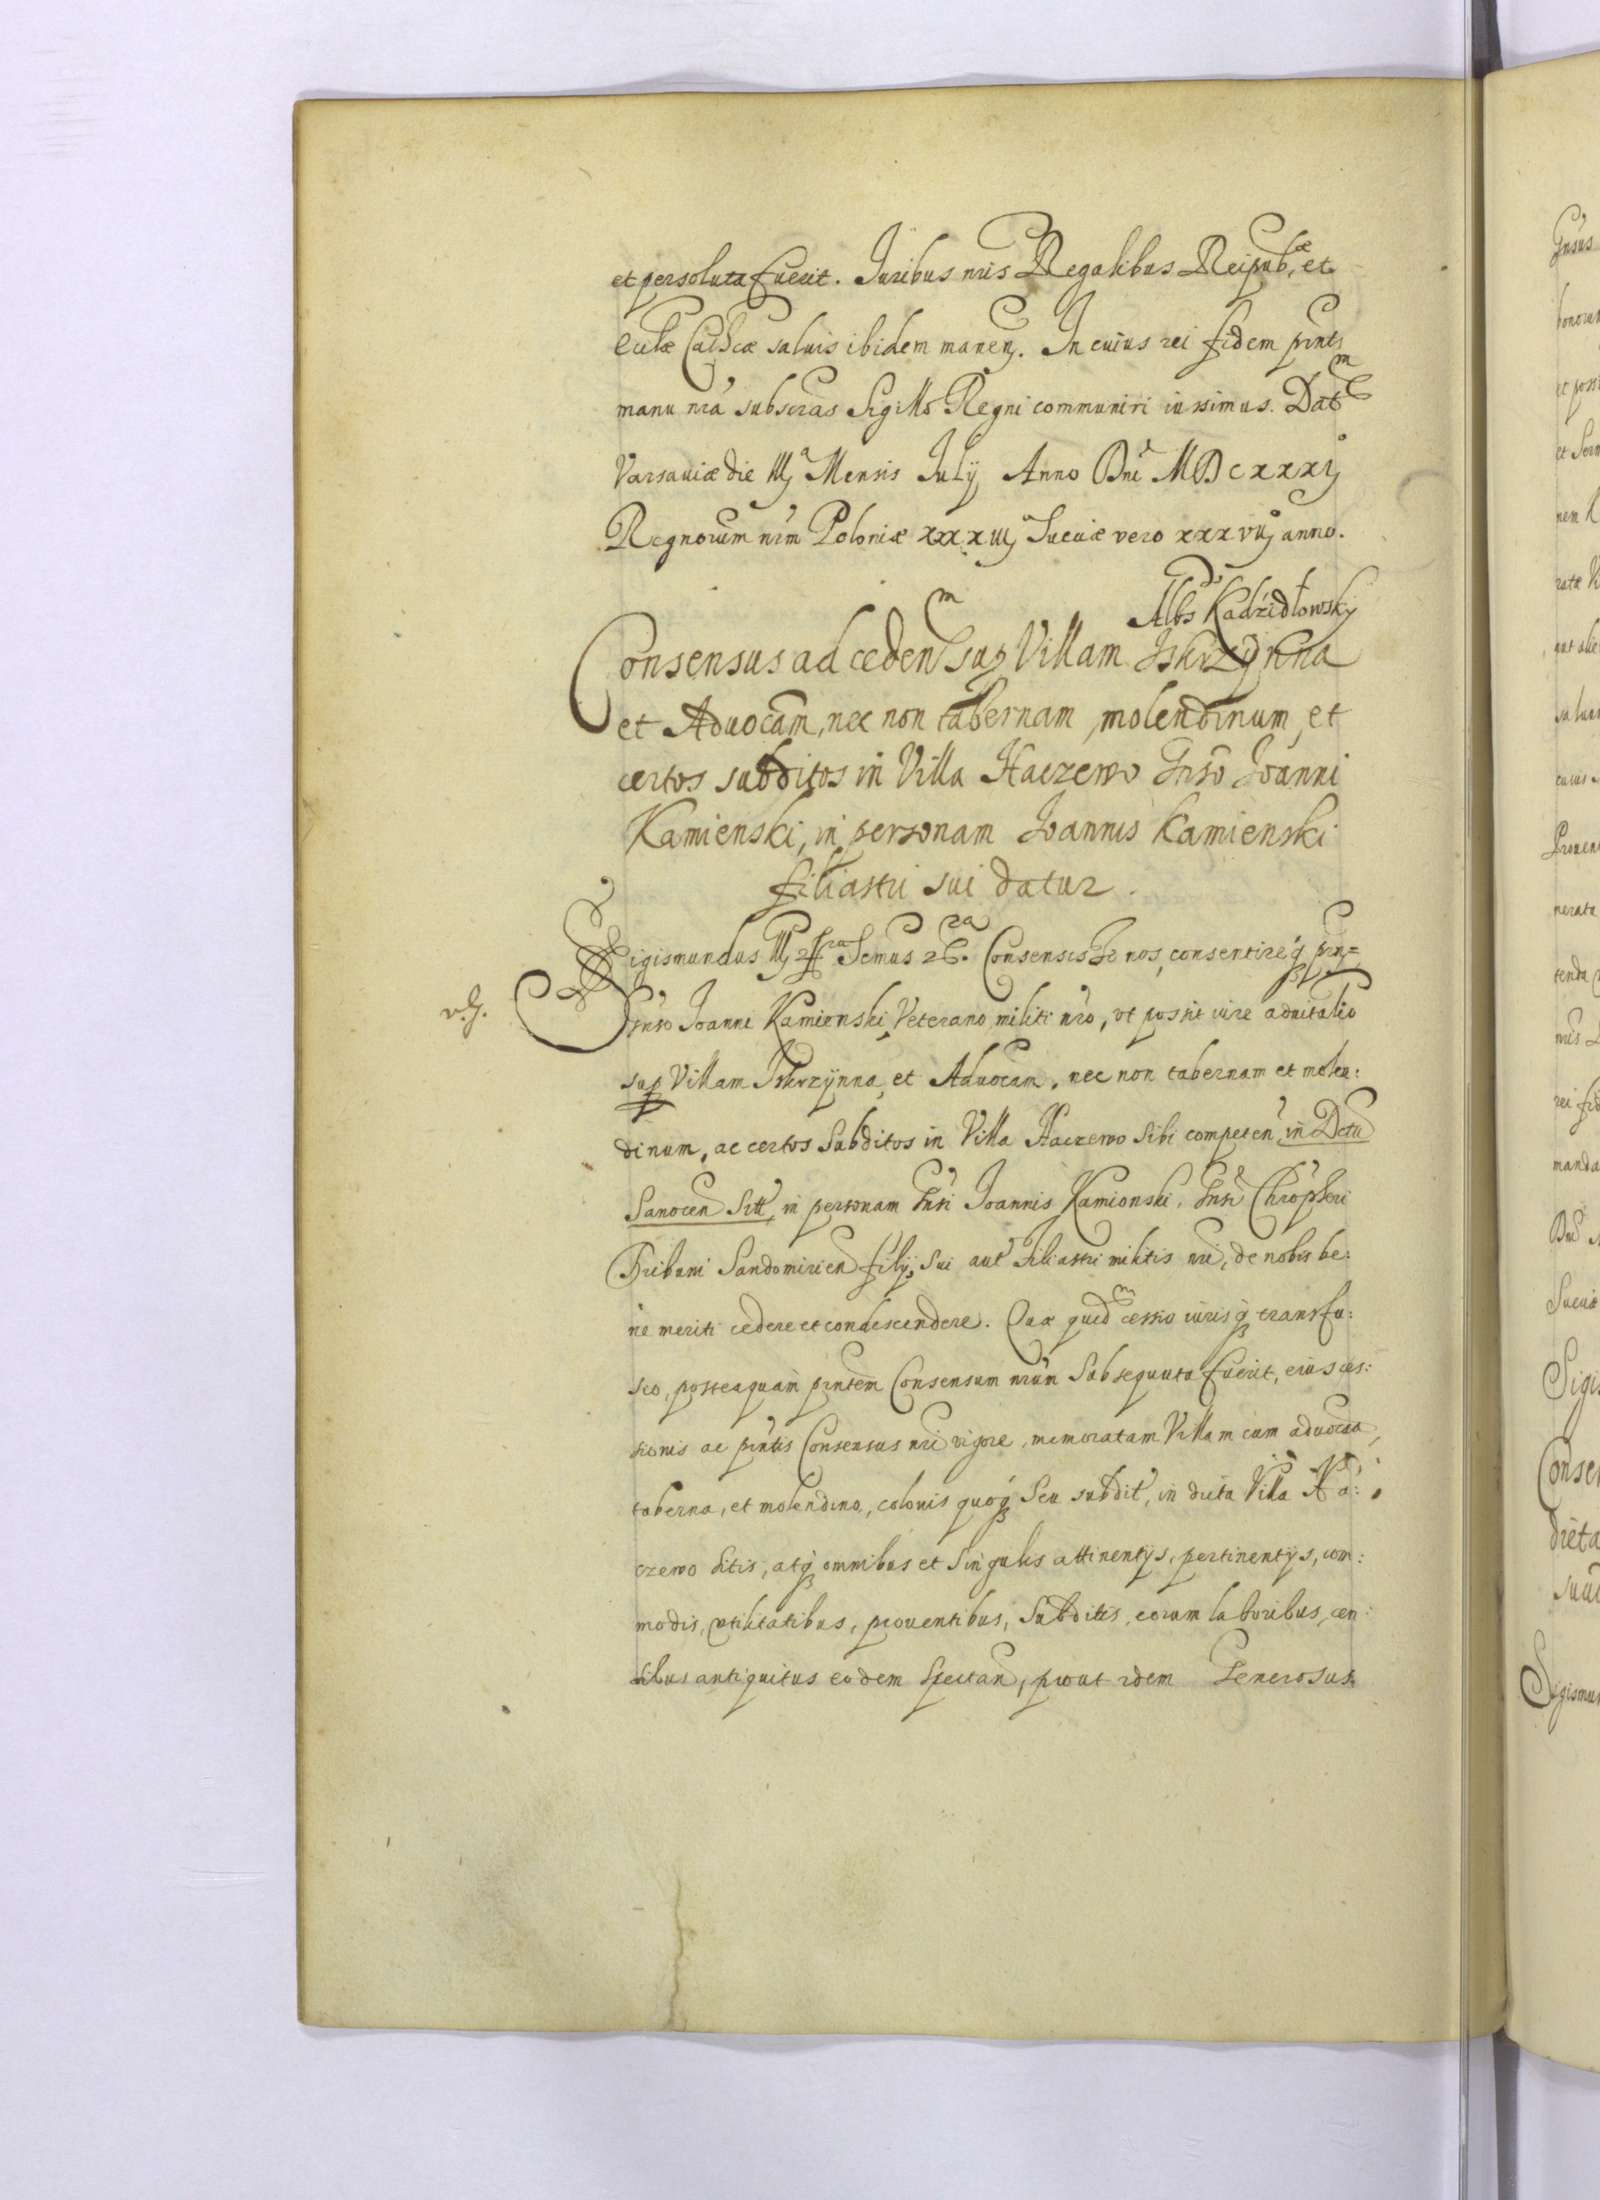 et persoluta fuerit. Juribus nris Regalibus Reipubcæ, et
Ecclæ Cathcæ saluis ibidem manen. In cuius rei fidem pnts
manu nrã subscras Sigillo Regni communiri iussimus. Datm
Varsauiæ die IIIa Mensis July Anno Dni MDCXXXI
Regnorum nrm Poloniæ XXXXIII Sueciæ vero XXXVIII anno.
Albs Kadzidłowsky
Consensus ad cedenm sup Villam Iskrzynna
et Aduocam, nec non tabernam, molendinum, et
certos subditos in Villa Haczewo Gnso Joanni
Kamienski, in personam Joannis Kamienski
filiastri sui datur.
Sigismundus III Consensisse nos, consentireq pn=
v.G.
Gnso Joanni Kamienski Veterano militi nro, ut possit iure aduitalio
sup Villam Iskrzynna, et Aduocam, nec non tabernam et molen:
dinum, ac certos Subditos in Villa Haczewo sibi competen, in Dctu
Sanocen Sitt, in personam Gnsi Joannis Kamionski, Gnsi Chrophori
Tribuni Sandomirien filij, sui aut filiastri militis nri, de nobis be:
ne meriti cedere et condescendere. Quæ quidm cessio iurisq transfu:
sio, posteaquam pntem Consensum nrum Subsequuta fuerit, eius ces:
sionis ac pntis Consensus nri vigore, memoratam Villam cum aduocata,
taberna, et molendino, colonis quoq Seu subdit, in dicta Villa Ha:
czewo sitis, atq omnibus et Singulis attinentijs, pertinentijs, com:
modis, vtilitatibus, prouentibus, Subditis, eorum laboribus, cen:
sibus antiquitus eodem Spectan, prout idem Generosus